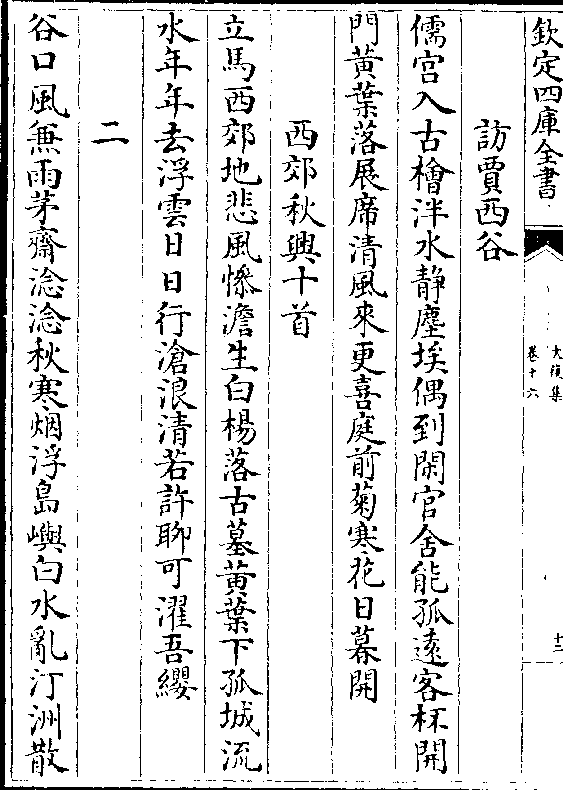 欽定四庫全書
大復集
卷十六
十三
訪賈西谷
儒宫入古檜泮水静塵埃偶到閑官舍能孤遠客杯開
門黄葉落展席清風來更喜庭前菊寒花日暮開
西郊秋興十首
立馬西郊地悲風慘澹生白楊落古墓黄葉下孤城流
水年年去浮雲日日行滄浪清若許聊可濯吾纓
二
谷口風無雨茅齋淰淰秋寒烟浮島嶼白水亂汀洲散